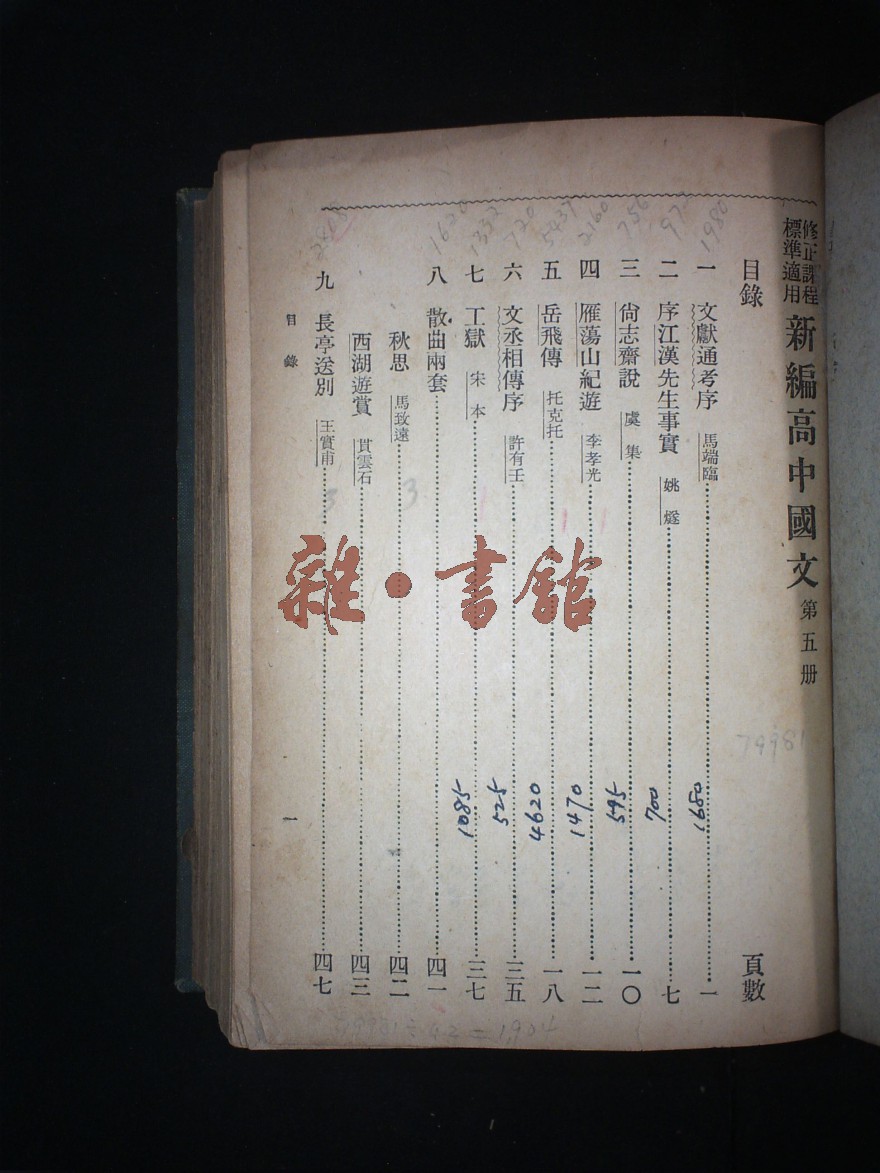 修正課程標準適用 新編高中國文 第五册
目錄 頁數
一 文獻通考序 馬端臨 一
1980
1680
二 序江漢先生事實 姚燧 七
700
三 尙志齋說 虞集 一〇
756
595
四 雁蕩山紀遊 李孝光 一二
2160
1470
五 岳飛傳 托克托 一八
5437
4620
六 文丞相傳序 許有壬 三五
720
525
七 工獄 宋本 三七
1332
1085
八 散曲兩套 四一
1620
秋思 馬致遠 四二
3
西湖遊賞 貫雲石 四三
九 長亭送別 王實甫 四七
3
目錄 一
79981
雜·書館